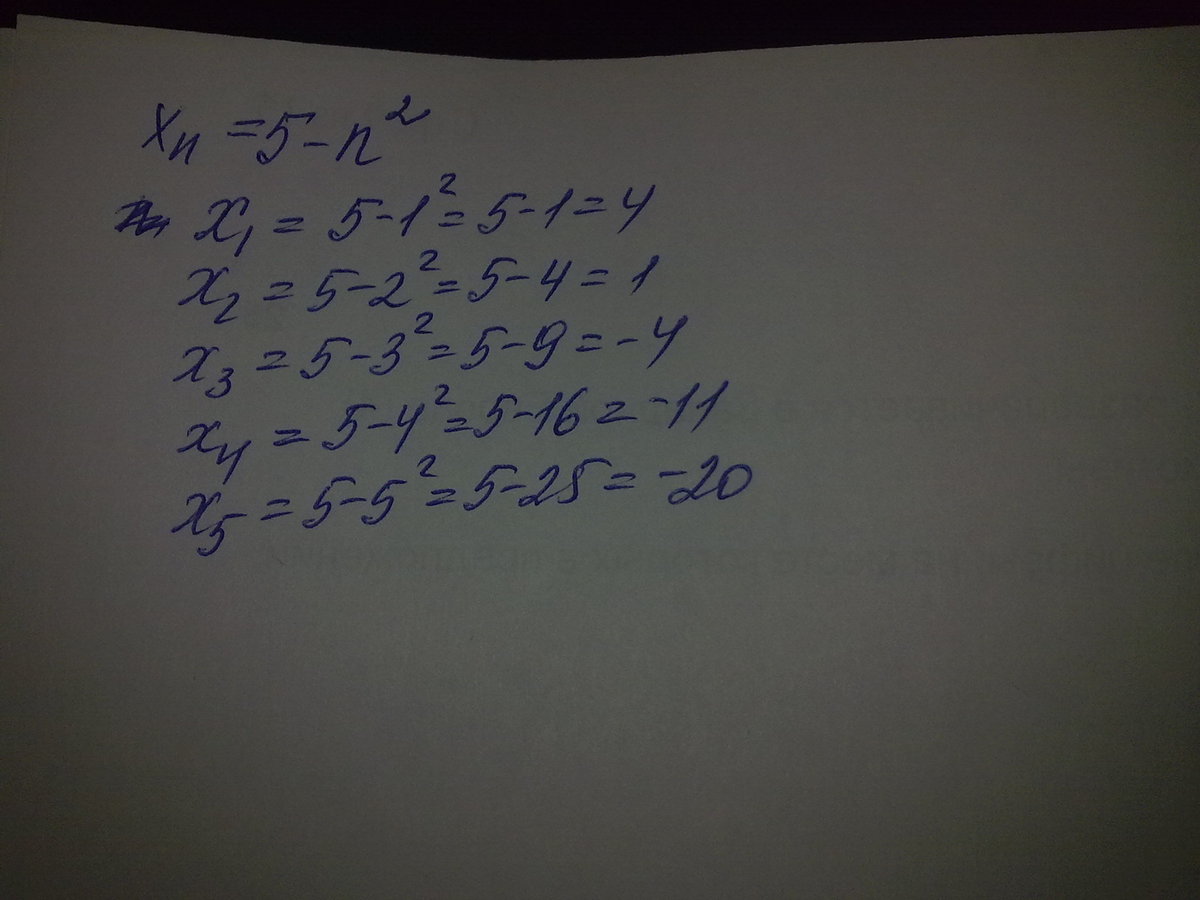 xₙ = 5 - n²
x₁ = 5 - 1² = 5 - 1 = 4
x₂ = 5 - 2² = 5 - 4 = 1
x₃ = 5 - 3² = 5 - 9 = -4
x₄ = 5 - 4² = 5 - 16 = -11
x₅ = 5 - 5² = 5 - 25 = -20